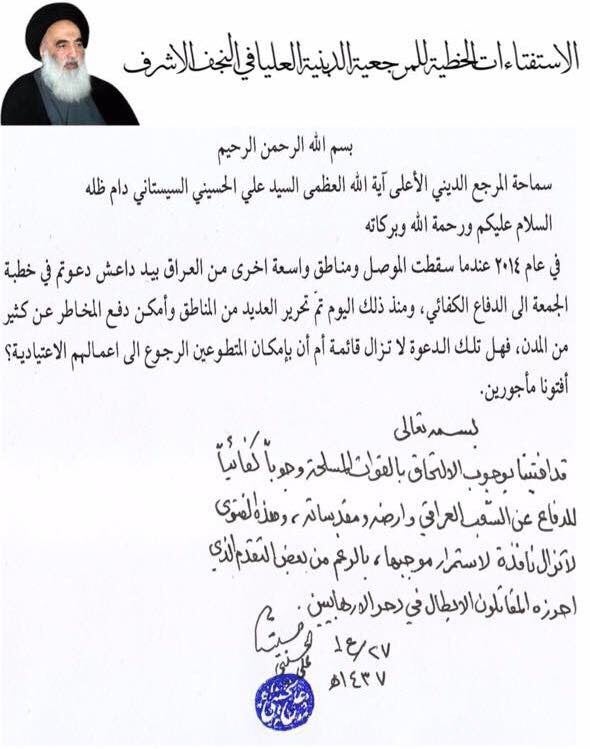 الاستفتاءات الخطية للمرجعية الدينية العليا في النجف الاشرف
بسم الله الرحمن الرحيم
سماحة المرجع الديني الأعلى آية الله العظمى السيد علي الحسيني السيستاني دام ظله
السلام عليكم ورحمة الله وبركاته
في عام ٢٠١٤ عندما سقطت الموصل ومناطق واسعة اخرى من العراق بيد داعش دعوتم في خطبة
الجمعة الى الدفاع الكفائي، ومنذ ذلك اليوم تمّ تحرير العديد من المناطق وأمكن دفع المخاطر عن كثير
من المدن، فهل تلك الدعوة لا تزال قائمة أم أن بإمكان المتطوعين الرجوع الى اعمالهم الاعتيادية؟
أفتونا مأجورين.
بسمه تعالى
قد افتينا بوجوب الالتحاق بالقوات المسلحة وجوباً كفائياً
للدفاع عن الشعب العراقي وارضه ومقدساته، وهذه الفتوى
لا تزال نافذة لاستمرار موجبها، بالرغم من بعض التقدم الذي
احرزه المقاتلون الابطال في دحر الارهابيين.
٢٧/ع١
١٤٣٧هـ
علي الحسيني